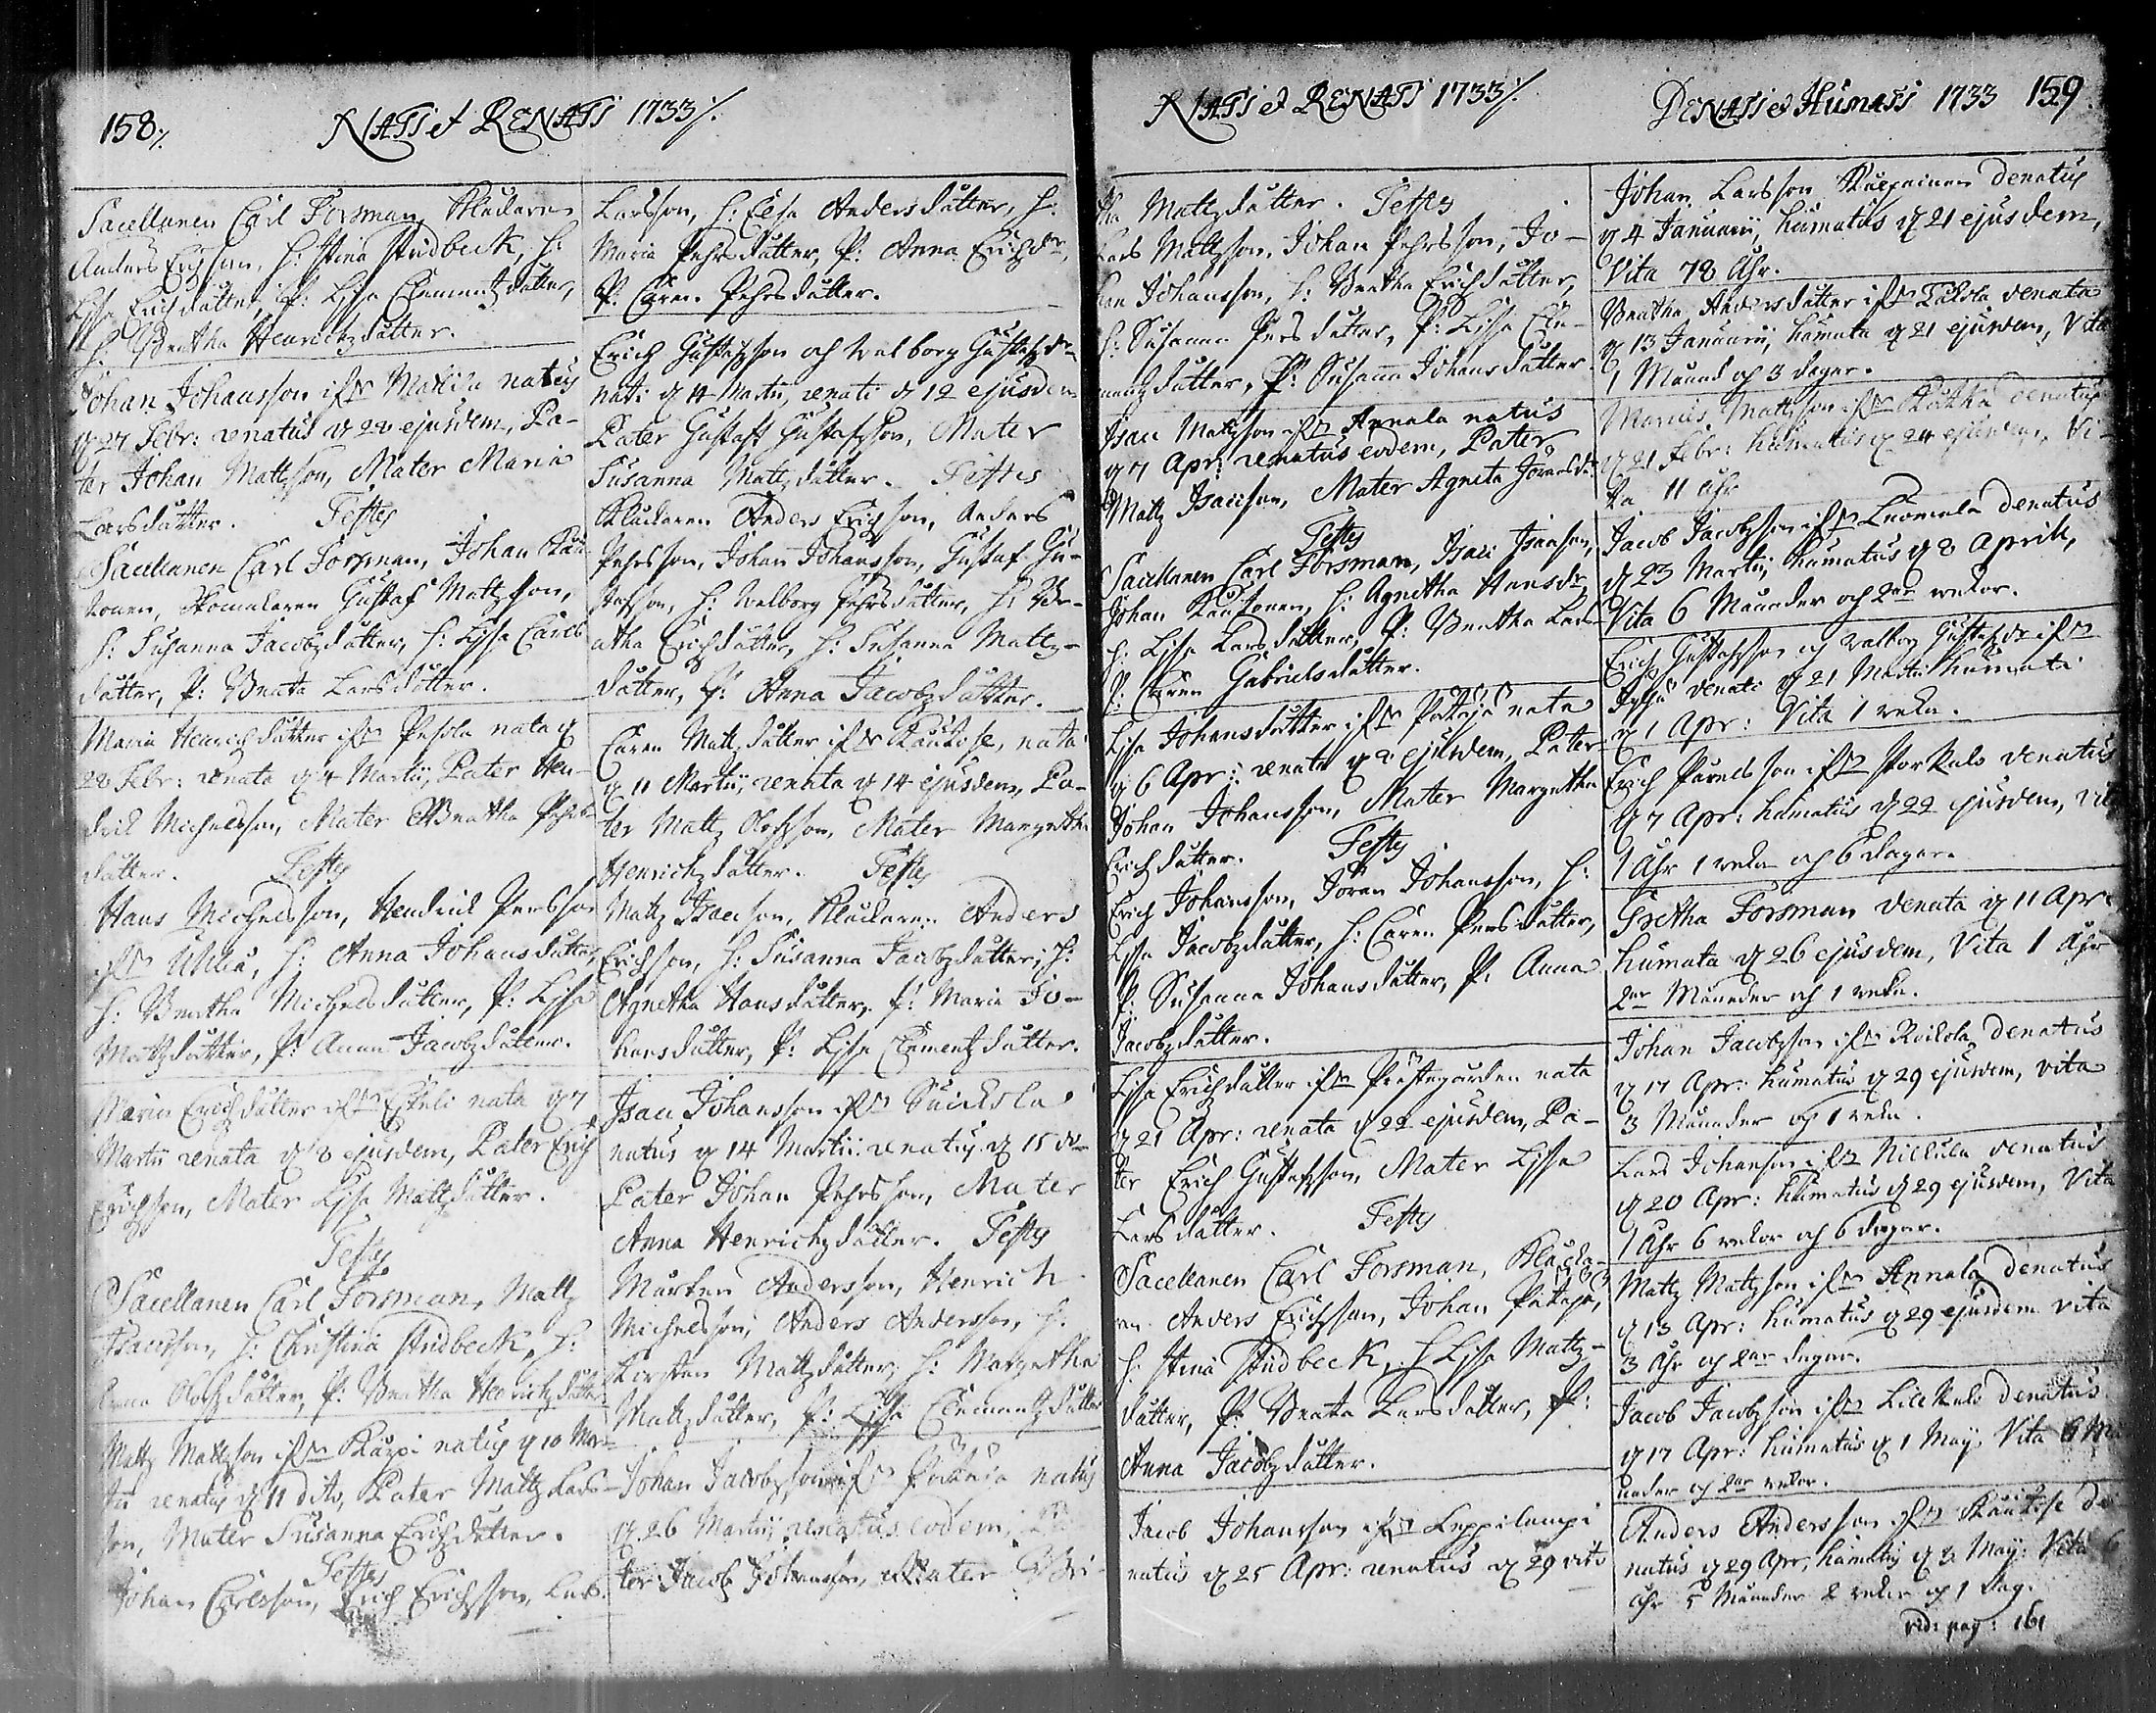 158 ⁒ NATI et RENATI 1733 ⁒
Sacellanen Carl Forsman, Kluckaren
Anders Erichson, H: Stina Studbeck, H:
Lisa Erichsdatter, P: Lisa Clementzdatter,
H: Beatha Henrichzdatter.
Johan Johansson ifrån natus
d 27 Febr: renatus d 28 ejusdem, Pa-
ter Johan Mattzson, Mater Maria
Larsdatter. Testes
Sacellanen Carl Forsman, Johan Kau-
konen, Gustaf Mattzson,
H: Susanna Jacobzdatter, H: Lisa Carls
datter, P: Beata Larsdatter.
Maria Henrichsdatter ifrån Pesola nata d
28 Febr: renata d 4 Martii, Pater Hen-
drik Michelsson, Mater Beatha Pehrs
datter. Testes
Hans Michelsson, Hendrick Persson
ifrån H: Anna Johansdatter,
H: Beatha Michelsdatter, P: Lisa
Mattzdatter, P: Anna Jacobzdatter.
Maria Erichsdatter ifrån Eskeli nata d 7
Martii renata d 8 ejusdem, Pater Erich
Erichsson, Mater Lisa Mattzdatter.
Testes
Sacellanen Carl Forsman, Mattz
Isacsson, H: Christina Studbeck, H:
Anna Olofzdatter, P: Beatha Henrichzdatter
Mattz Mattzson ifrån Karpi natus d 10 Mar-
tii renatus d 11 dito, Pater Mattz Lars-
son, Mater Susanna Erichsdatter.
Testes
Johan Carlsson, Erich Erichsson, Lars
Larsson, H: Elsa Andersdatter, H:
Maria Pehrsdatter, P: Anna Erichsdr,
P: Caren Pehrsdatter.
Erich Gustafzson och Walborg Gustafzdr
nati d 11 Martii, renati d 12 ejusdem
Pater Gustaf Gustafzson, Mater
Susanna Mattzdatter. Testes
Kluckaren Anders Erichson, Anders
Pehrsson, Johan Johansson, Gustaf Gu-
stafsson, H: Walborg Pehrsdatter, H: Be-
atha Erichsdatter, H: Susanna Mattz-
datter, P: Anna Jacobzdatter.
Caren Mattzdatter ifrån Kautoise, nata
d 11 Martii, renata d 14 ejusdem, Pa-
ter Mattz Olofzson, Mater Margretha
Henrichzdatter. Testes
Mattz Isacson, Kluckaren Anders
Erichsson, H: Susanna Jacobzdatter, H:
Agnetha Hansdatter, P: Maria Jo-
hansdatter, P: Lisa Clementzdatter.
Isac Johansson ifrån Suicksla
natus d 14 Martii renatus d 15 do
Pater Johan Pehrsson, Mater
Anna Henrichzdatter. Testes
Marten Andersson, Henrich
Michelsson, Anders Andersson, H.
Kirstin Mattzdatter, H: Margretha
Mattzdatter, P: Lisa Clementzdatter
Johan Jacobzson ifrån natus
d 26 Martii, renatus eodem, Pa-
ter Jacob Johansson, Mater Bri-
NATI et RENATI 1733 ⁒
tha Mattzdatter. Testes
Lars Mattzson, Johan Pehrsson, Jo-
han Johansson, H: Beatha Erichsdatter,
H: Susanna Persdatter, P: Lisa Cle-
mentzdatter, P: Susanna Johansdatter.
Isac Mattzson ifrån Annala natus
d 7 Apr: renatus eodem, Pater
Mattz Isacson, Mater Agneta Göransdr
Testes
Sacellanen Carl Forsman, Isac Isacson,
Johan Kautonen, H: Agnetha Hansdr,
H. Lisa Larsdatter, P: Beatha Lars
P: Caren Gabrielsdatter.
Lisa Johansdatter ifrån Pättäjä nata
d 6 Apr: renata d 8 ejusdem, Pater
Johan Johansson, Mater Margretha
Erichsdatter. Testes
Erich Johansson, Jöran Johansson, H:
Lisa Jacobzdatter, H: Caren Persdatter,
P: Susanna Johansdatter, P: Anna
Jacobzdatter.
Lisa Erichsdatter ifrån Prästegården nata
d 21 Apr: renata d 22 ejusdem, Pa-
ter Erich Gustafzson, Mater Lissa
Larsdatter. Testes
Sacellanen Carl Forsman, Klucka-
ren Anders Erichson, Johan Pättäjä,
H. Stina Studbeck, H Lisa Mattz-
datter, P: Beata Larsdatter, P:
Anna Jacobzdatter.
Jacob Johansson ifrån Leppilampi
natus d 25 Apr: renatus d 29 dito
DENATI et HUMATI 1733 159
Johan Larsson denatus
d 4 Januarii, humatus d 21 ejusdem,
Vita 78 Åhr.
Beatha Andersdatter ifrån denata
d 13 Januarii, humata d 21 ejusdem, Vita
1 Månad och 3 dagar.
Marcus Mattzson ifrån denatus
d 21 Febr: humatus d 24 ejusdem, Vi-
ta 11 åhr
Jacob Jacobzson ifrån Luomala denatus
d 23 Martii, humatus d 8 Aprill,
Vita 6 Månader och 2ne wekor.
Erich Gustafzson och Walborg Gustafzdr ifrån
denati d 21 Martii humati
d 1 Apr: Vita 1 weka.
Erich Pavelsson ifrån Porkala denatus
d 7 Apr: humatus d 22 ejusdem, vita
1 Åhr 1 weka och 6 dagar.
Gretha Forsman denata d 11 Apr:
humata d 26 ejusdem, Vita 1 Åhr
2ne Månader och 1 weka.
Johan Jacobzson ifrån Roikola denatus
d 17 Apr: humatus d 29 ejusdem, vita
3 Månader och 1 weka.
Lars Johansson ifrån Nickula denatus
d 20 Apr: humatus d 29 ejusdem, Vita
1 Åhr 6 wekor och 6 dagar.
Mattz Mattzson ifrån Annala denatus
d 13 Apr: humatus d 29 ejusdem vita
3 Åhr och 2ne dagar.
Jacob Jacobzson ifrån denatus
d 17 Apr: humatus d 1 Maij. Vita 6 Må
nader och 2ne wekor.
Anders Andersson ifrån Kautoise de-
natus d 29 Apr, humatus d 3 Maij: Vita 6
åhr 5 Månader 2 wekor och 1 dag.
vid: pag: 161